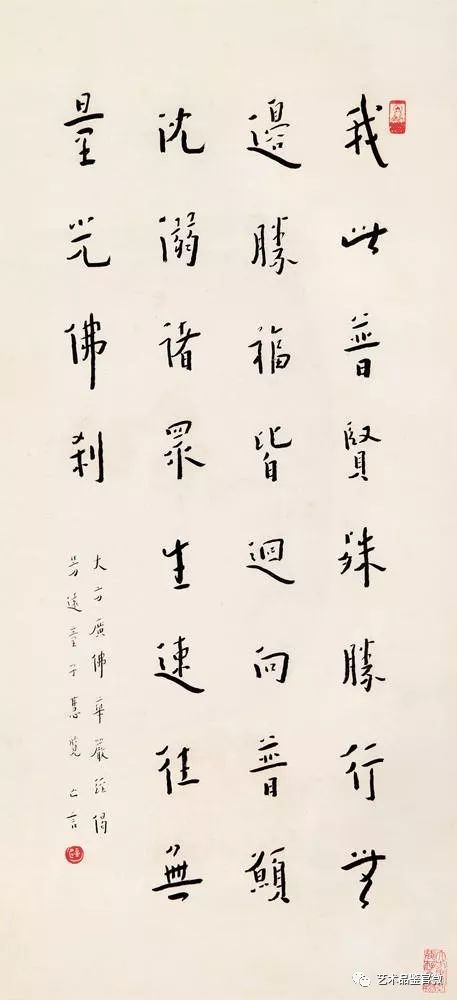 我此普賢殊勝行無
邊勝福皆迴向普願
沈溺諸眾生速往無
量光佛刹
大方廣佛華嚴經偈
芳遠童子慧覽 亡言
艺术品鉴官微